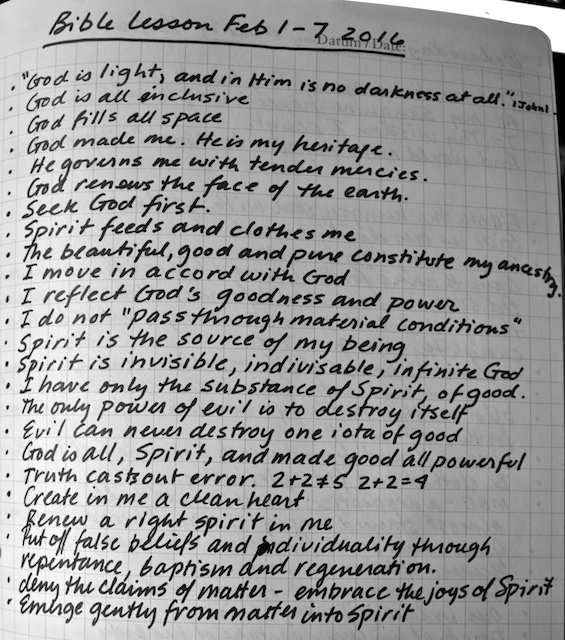 Bible Lesson Feb 1-7, 2016
Datum/Date:
• "God is light, and in Him is no darkness at all." 1 John 1
• God is all inclusive
• God fills all space
• God made me. He is my heritage.
• He governs me with tender mercies.
• God renews the face of the earth.
• Seek God first.
• Spirit feeds and clothes me
• The beautiful, good and pure constitute my ancestry.
• I move in accord with God
• I reflect God's goodness and power
• I do not "pass through material conditions"
• Spirit is the source of my being
• Spirit is invisible, indivisable, infinite God
• I have only the substance of Spirit, of good.
• The only power of evil is to destroy itself
• Evil can never destroy one iota of good
• God is all, Spirit, and made good all powerful
• Truth casts out error. 2+2≠5 2+2=4
• Create in me a clean heart
• Renew a right spirit in me
• Put off false beliefs and individuality through
repentance, baptism and regeneration.
• deny the claims of matter - embrace the joys of Spirit
• Emerge gently from matter into Spirit